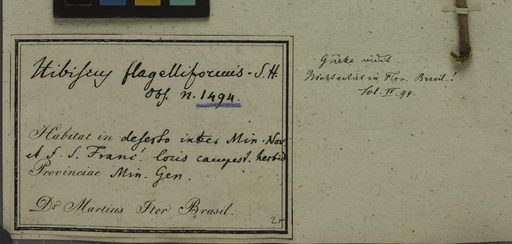 Hibiscus flagelliformis. S.H.
Obs. n. 1494.
Habitat in deserto inter Min. Nov.
et f. S. Franc. locis campest. herbid.
Provinciae Min. Gen.
Dr. Martius Iter Brasil.
Gürke vidit.
Nicht citirt in Flor. Brasil.!